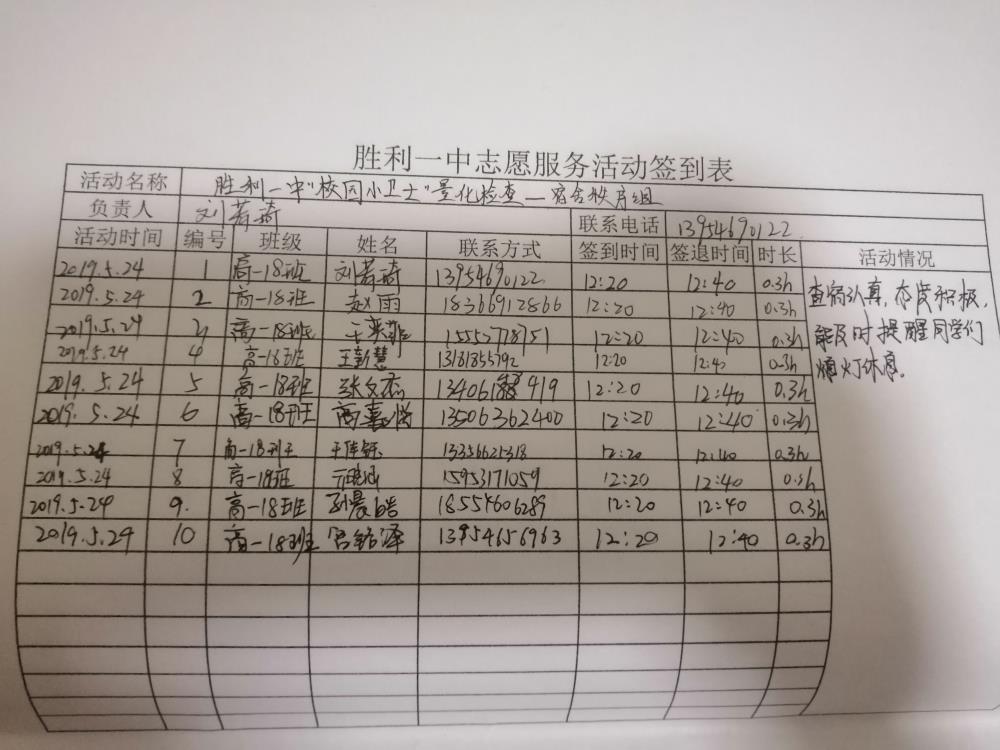 胜利一中志愿服务活动签到表
活动名称 胜利一中"校园小卫士"量化检查—宿舍秩序组
负责人 刘若琦 联系电话 13954690122
活动时间 编号 班级 姓名 联系方式 签到时间 签退时间 时长 活动情况
2019.5.24 1 高一18班 刘若琦 13954690122 12:20 12:40 0.3h
2019.5.24 2 高一18班 赵雨 18366912866 12:20 12:40 0.3h
2019.5.24 3 高一18班 15552778751 12:20 12:40 0.3h
2019.5.24 4 高一18班 王新慧 13181855792 12:20 12:40 0.3h
2019.5.24 5 高一18班 张文杰 12:20 12:40 0.3h
2019.5.24 6 高一18班 商嘉悦 13506362400 12:20 12:40 0.3h
2019.5.24 7 高一18班 13356621318 12:20 12:40 0.3h
2019.5.24 8 高一18班 15953171059 12:20 12:40 0.3h
2019.5.24 9. 高一18班 孙晨皓 18554606289 12:20 12:40 0.3h
2019.5.24 10 高一18班 宫铭泽 13954656963 12:20 12:40 0.3h
查宿认真,态度积极,
能及时提醒同学们
熄灯休息.